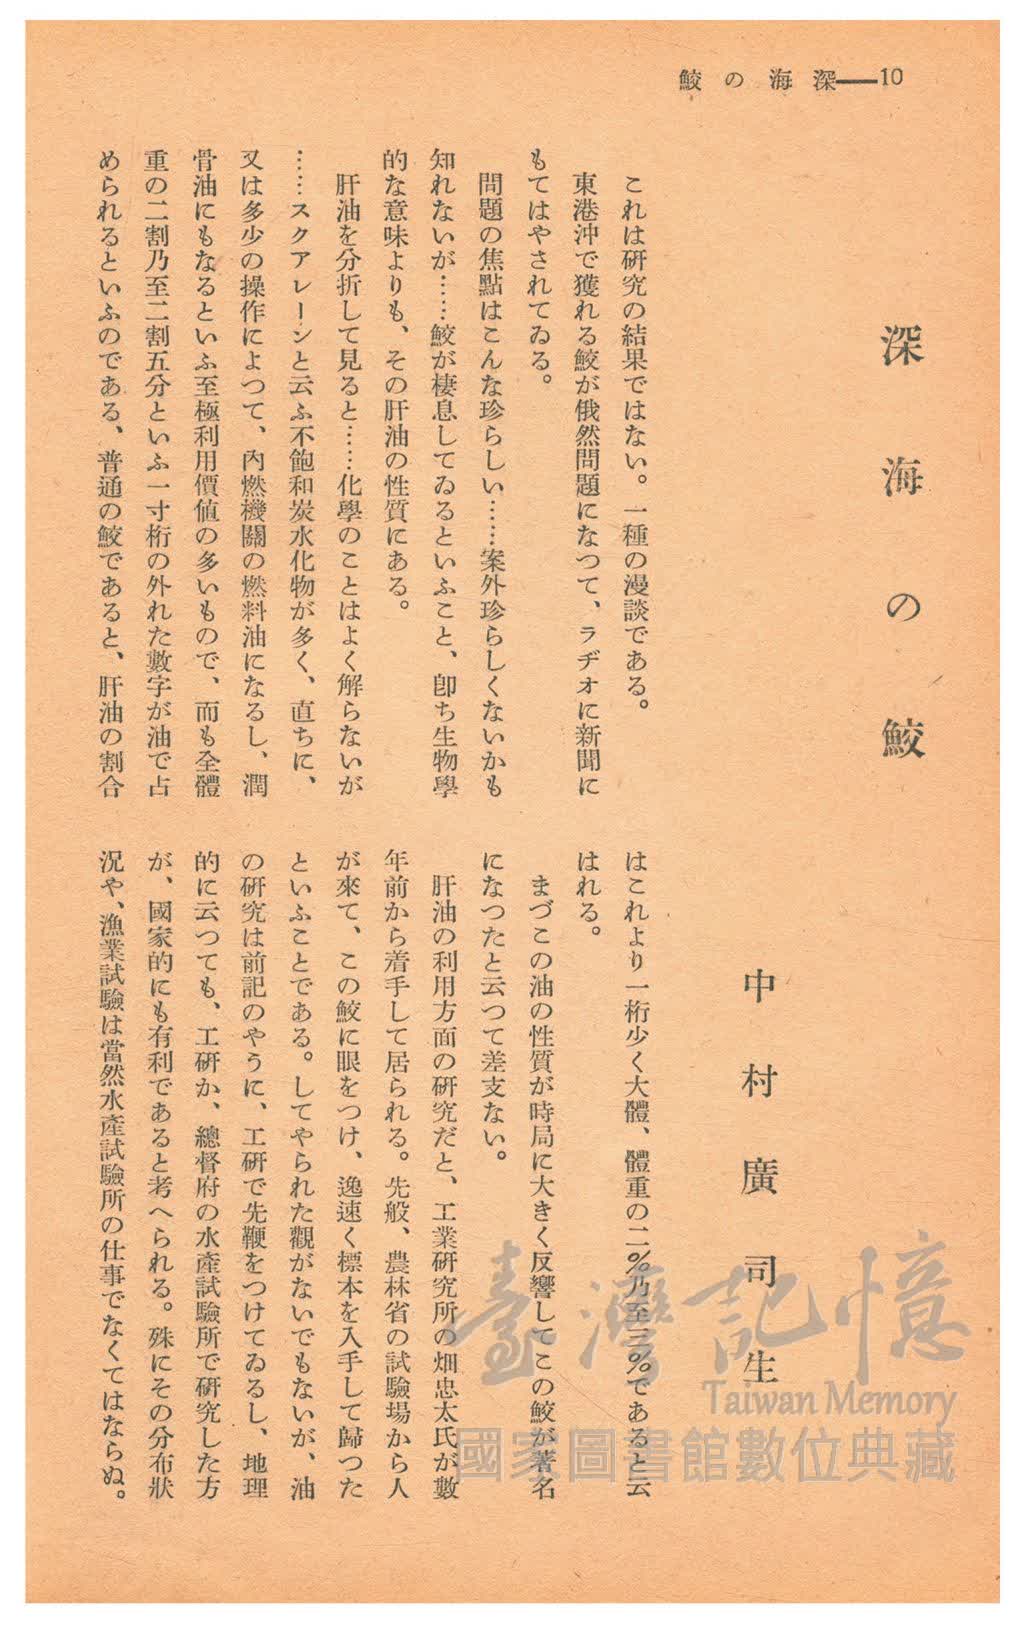 深海の鮫——10
深海の鮫
中村廣司生
これは研究の結果ではない。一種の漫談である。
東港沖で獲れる鮫が俄然問題になつて、ラヂオに新聞に
もてはやされてゐる。
問題の焦點はこんな珍らしい……案外珍らしくないかも
知れないが……鮫が棲息してゐるといふこと、卽ち生物學
的な意味よりも、その肝油の性質にある。
肝油を分折して見ると……化學のことはよく解らないが
……スクアレーンと云ふ不飽和炭水化物が多く、直ちに、
又は多少の操作によつて、內燃機關の燃料油になるし、潤
骨油にもなるといふ至極利用價値の多いもので、而も全體
重の二割乃至二割五分といふ一寸桁の外れた數字が油で占
められるといふのである、普通の鮫であると、肝油の割合
はこれより一桁少く大體、體重の二％乃至三％であると云
はれる。
まづこの油の性質が時局に大きく反響してこの鮫が著名
になつたと云つて差支ない。
肝油の利用方面の研究だと、工業研究所の畑忠太氏が數
年前から着手して居られる。先般、農林省の試驗場から人
が來て、この鮫に眼をつけ、逸速く標本を入手して歸つた
といふことである。してやられた觀がないでもないが、油
の研究は前記のやうに、工研で先鞭をつけてゐるし、地理
的に云つても、工研か、總督府の水產試驗所で研究した方
が、國家的にも有利であると考へられる。殊にその分布狀
況や、漁業試驗は當然水產試驗所の仕事でなくてはならぬ。
臺灣記憶
Taiwan Memory
國家圖書館數位典藏